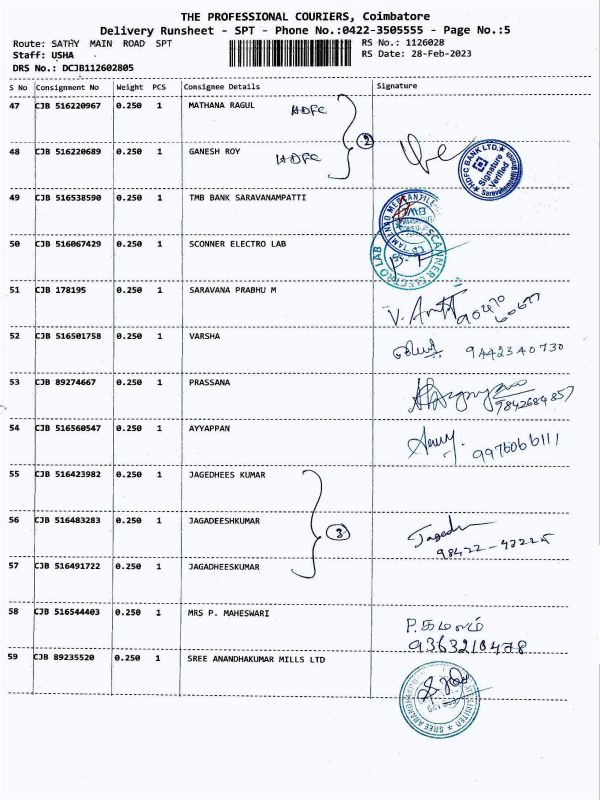 THE PROFESSIONAL COURIERS, Coimbatore
Delivery Runsheet - SPT - Phone No.:0422-3505555 - Page No.:5
Route: SATHY MAIN ROAD SPT
RS No.: 1126028
Staff: USHA
RS Date: 28-Feb-2023
DRS No.: DCJB112602805
S No Consignment No Weight PCS Consignee Details Signature
47 CJB 516220967 0.250 1 MATHANA RAGUL HDFC
2
48 CJB 516220689 0.250 1 GANESH ROY HDFC
HDFC BANK LTD.
Signature
Verified
49 CJB 516538590 0.250 1 TMB BANK SARAVANAMPATTI
TMB
50 CJB 516067429 0.250 1 SCONNER ELECTRO LAB
SCANNER ELECTRO LAB
51 CJB 178195 0.250 1 SARAVANA PRABHU M
52 CJB 516501758 0.250 1 VARSHA
9442340730
53 CJB 89274667 0.250 1 PRASSANA
9842684857
54 CJB 516560547 0.250 1 AYYAPPAN
9976066111
55 CJB 516423982 0.250 1 JAGEDHEES KUMAR
3
56 CJB 516483283 0.250 1 JAGADEESHKUMAR
57 CJB 516491722 0.250 1 JAGADHEESKUMAR
58 CJB 516544403 0.250 1 MRS P. MAHESWARI
P.கமலம்
9363210478
59 CJB 89235520 0.250 1 SREE ANANDHAKUMAR MILLS LTD